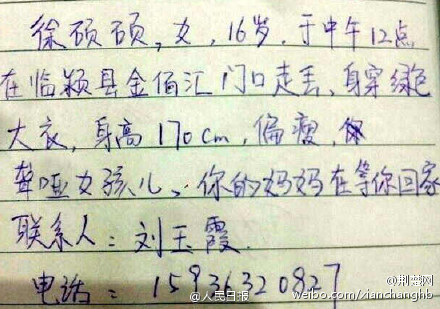 徐硕硕，女，16岁，于中午12点
在临颍县金佰汇门口走丢、身穿绿色
大衣，身高170cm，偏瘦，
聋哑女孩儿、你的妈妈在等你回家
联系人：刘玉霞.
电话：15936320827
@荆楚网
@人民日报 weibo.com/xianchanghb